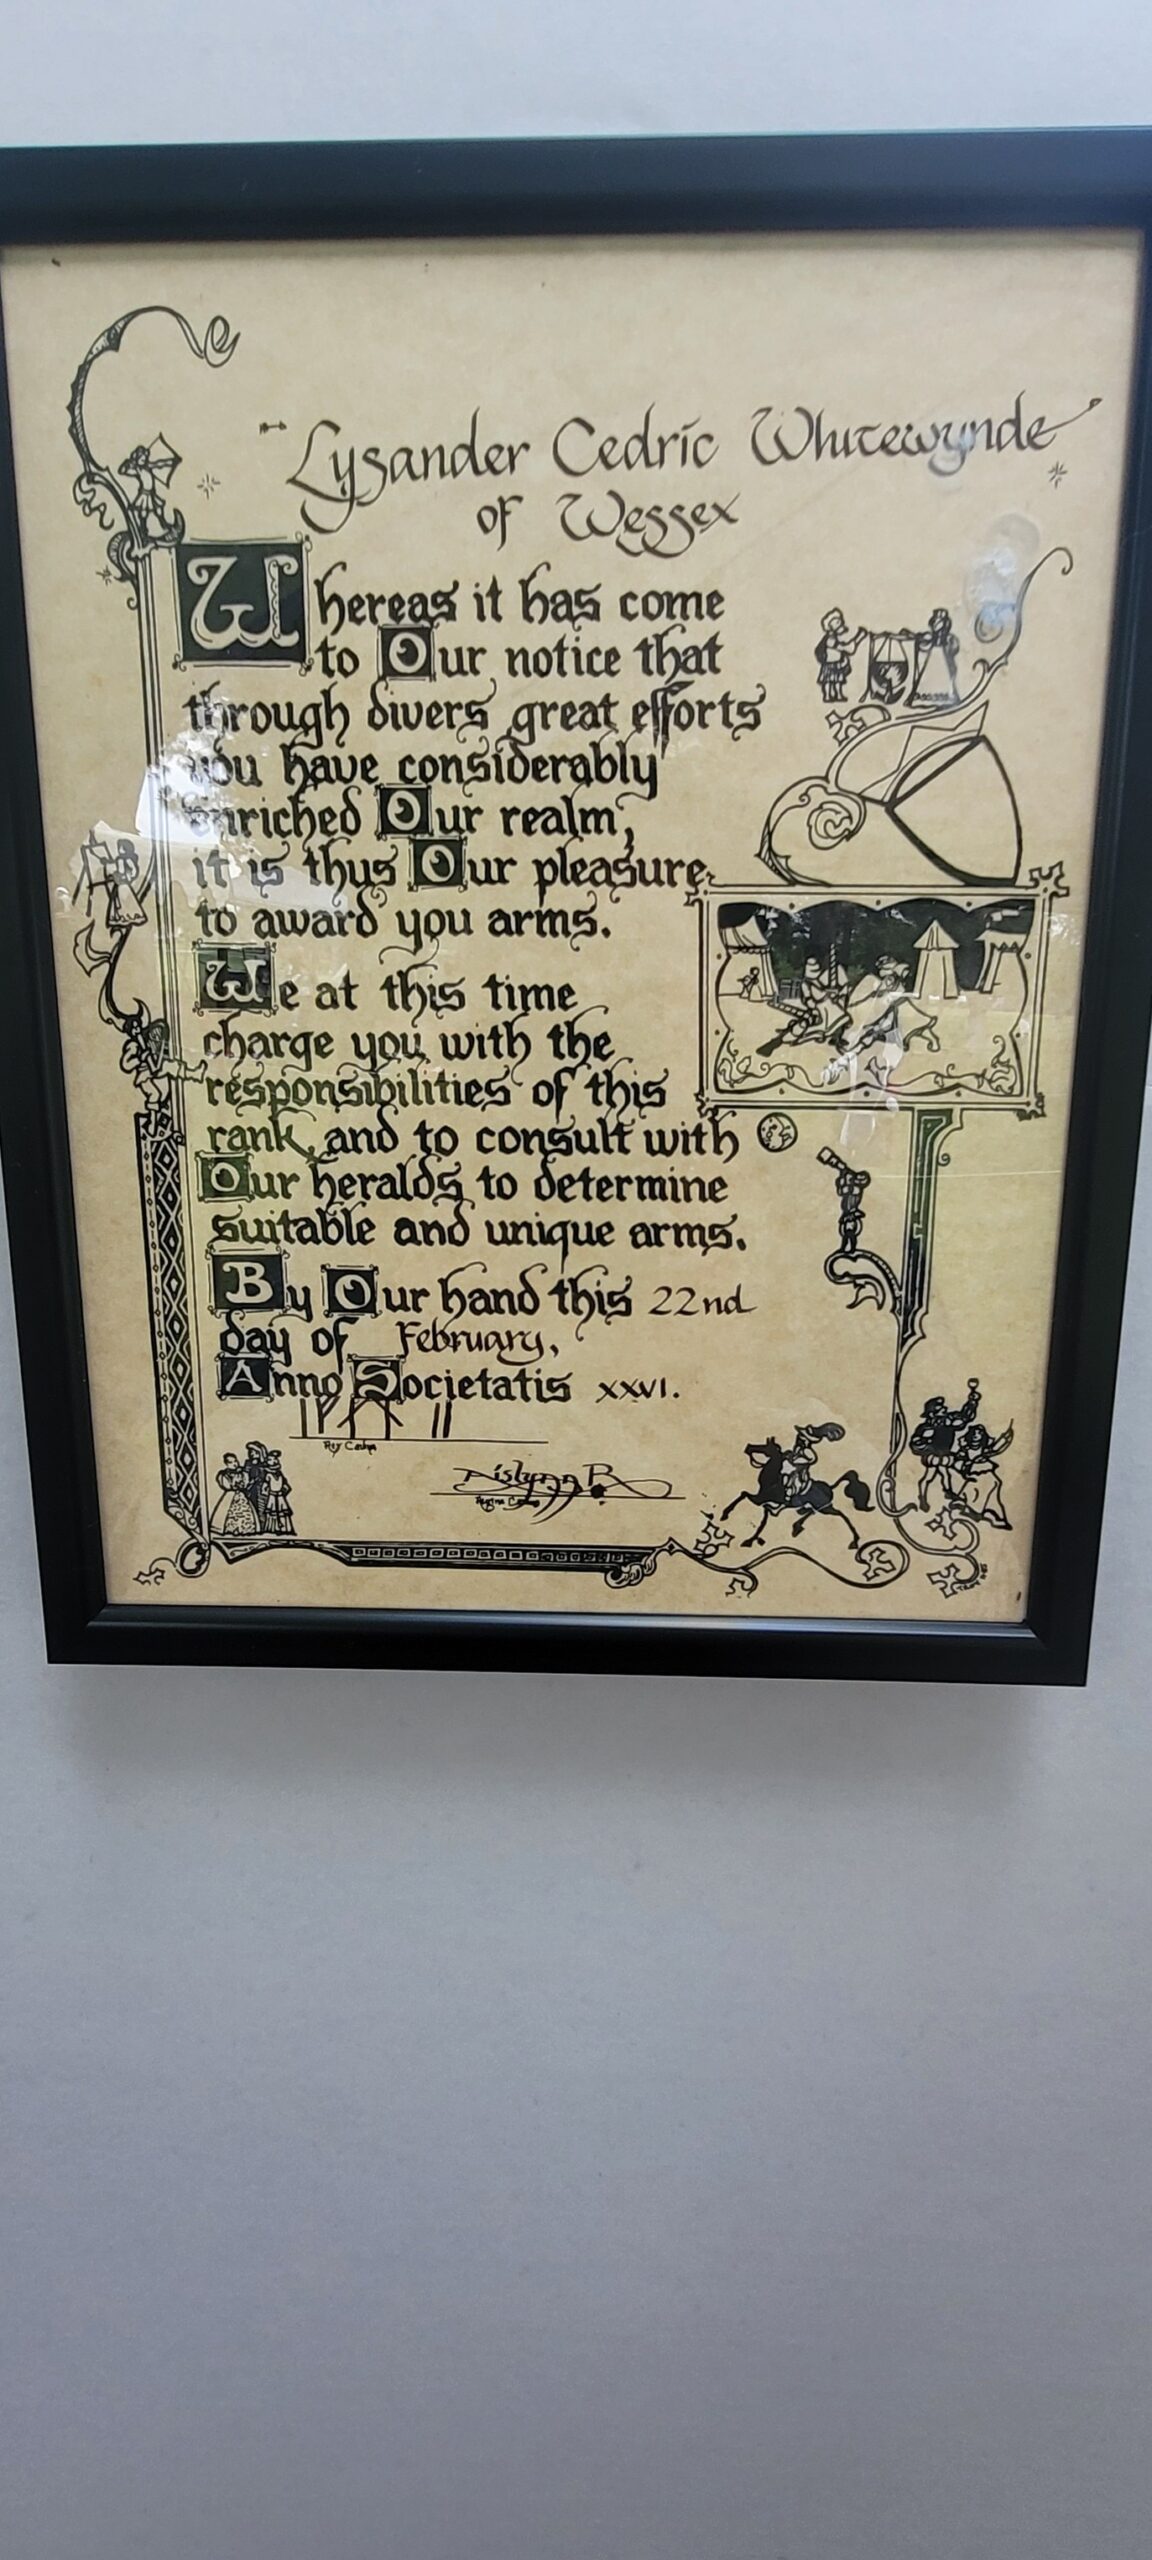 Lysander Cedric Whitewynde
of Wessex
Whereas it has come
to Our notice that
through divers great efforts
you have considerably
enriched Our realm,
it is thus Our pleasure
to award you arms.
We at this time
charge you with the
responsibilities of this
rank, and to consult with
Our heralds to determine
suitable and unique arms.
By Our hand this 22nd
day of February,
Anno Societatis XXVI.
Aislynn R